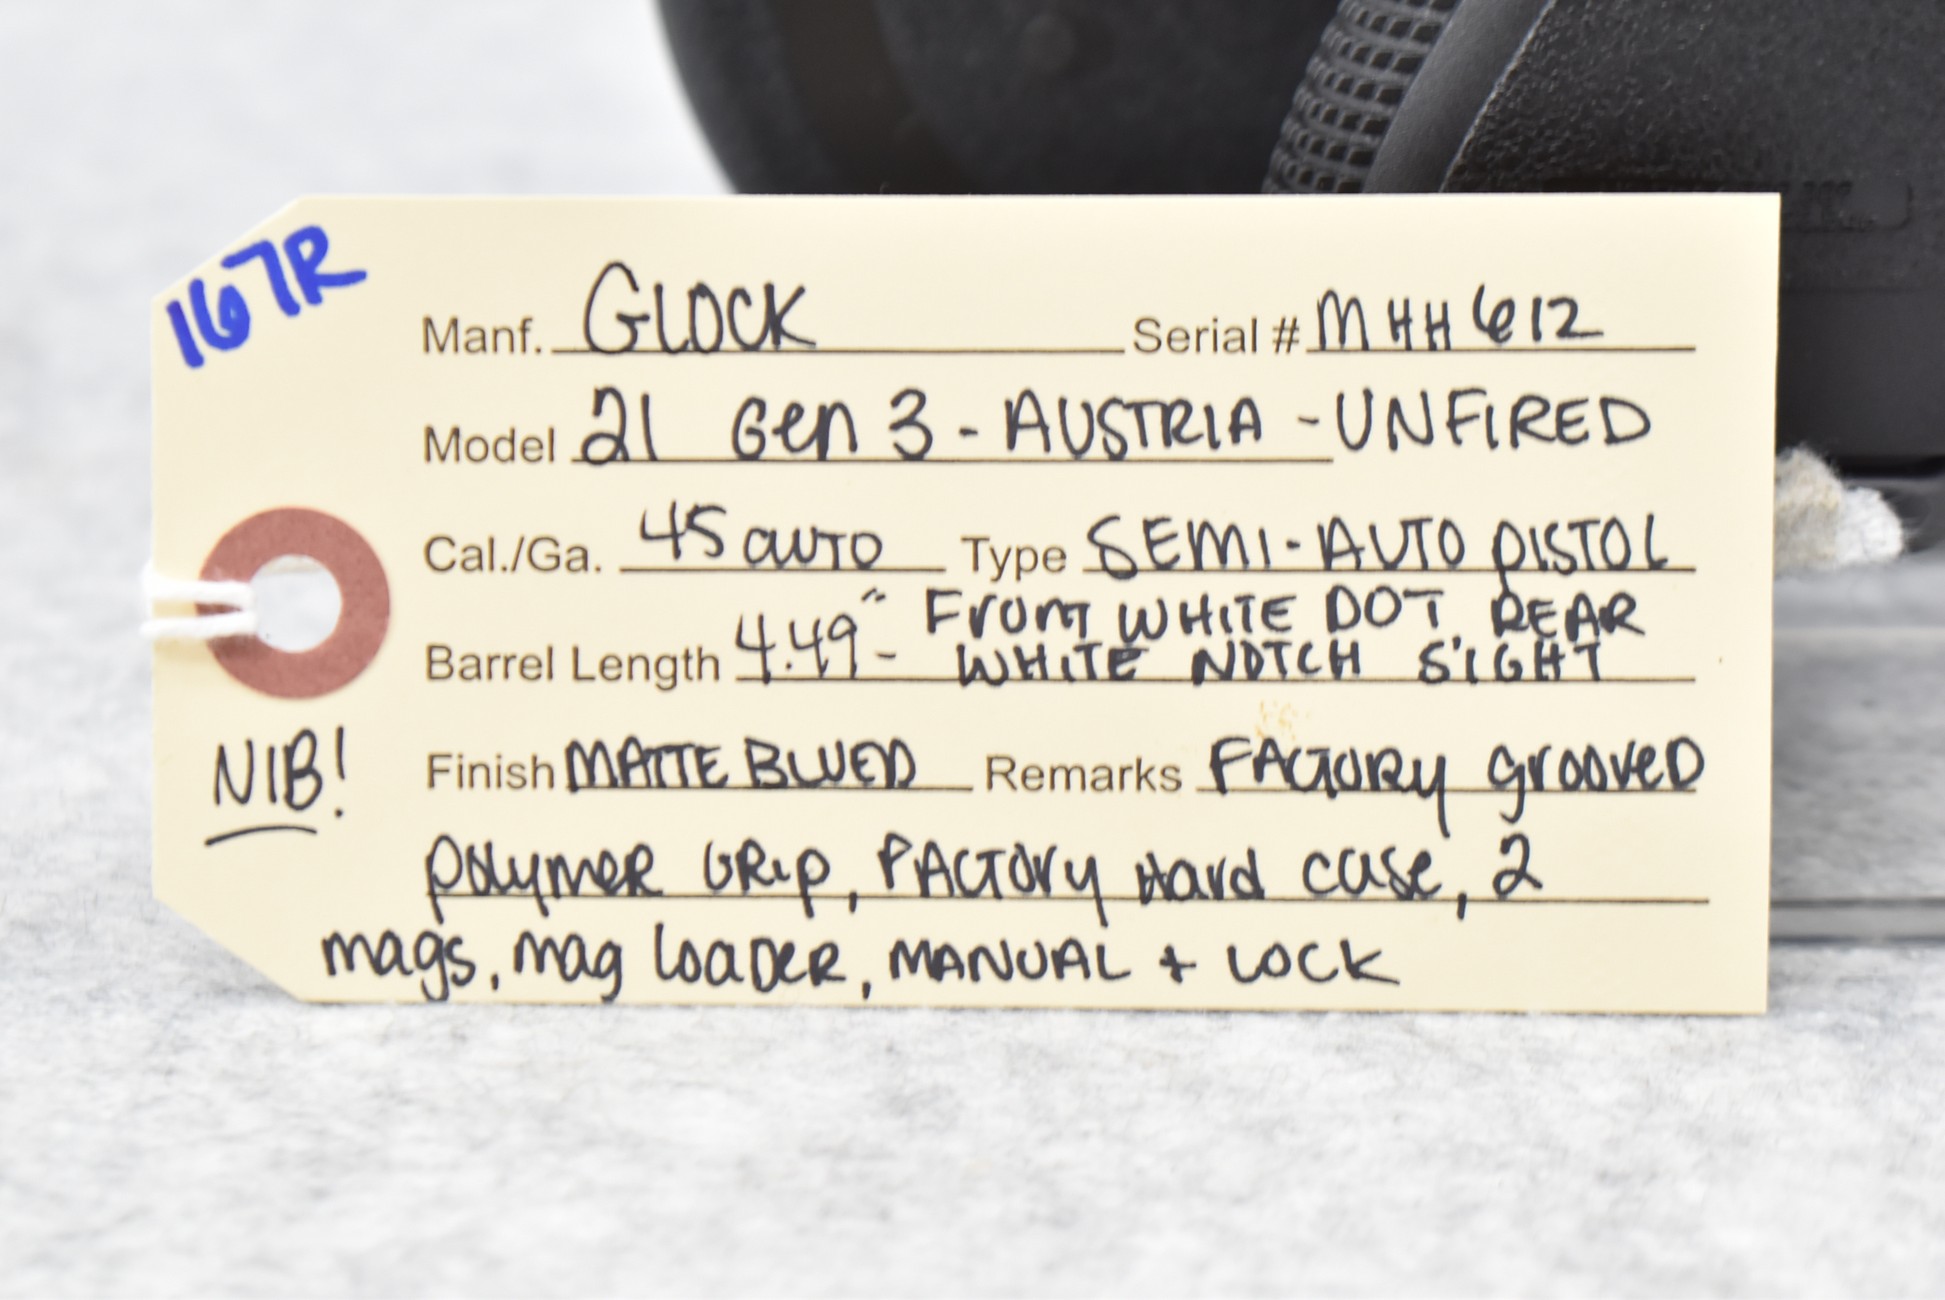 167R
Manf. GLOCK Serial # MHH612
Model 21 Gen 3 - AUSTRIA - UNFIRED
Cal./Ga. 45 auto Type SEMI-AUTO PISTOL
Barrel Length 4.49" - From WHITE DOT, REAR
WHITE NOTCH SIGHT
NIB!
Finish MATTE BLUED Remarks FACTORY grooved
polymer GRip, FACTORY Hard case, 2
mags, mag loader, MANUAL + LOCK